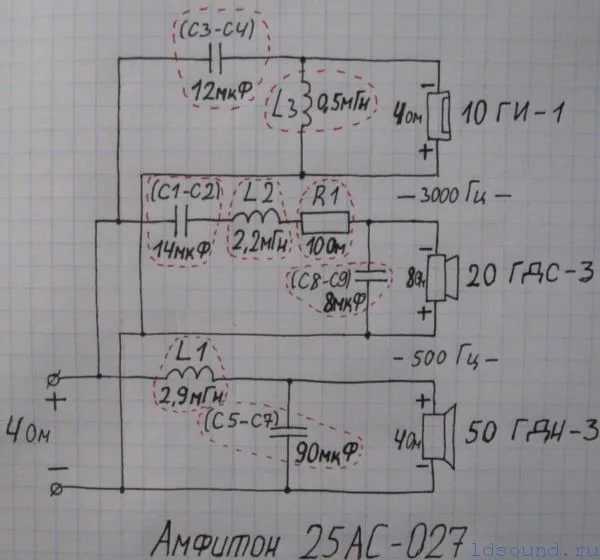 (С3-С4)
12мкФ
L3
0,5мГн
4Ом
10 ГИ-1
-
+
(С1-С2)
L2
R1
-3000 Гц-
14мкФ
2,2мГн
10Ом
-
(С8-С9)
8мкФ
8Ом
20 ГДС-3
+
L1
-500 Гц-
+
2,9мГн
4Ом
(С5-С7)
90мкФ
+
4Ом
50 ГДН-3
-
-
Амфитон 25АС-027
ldsound.ru